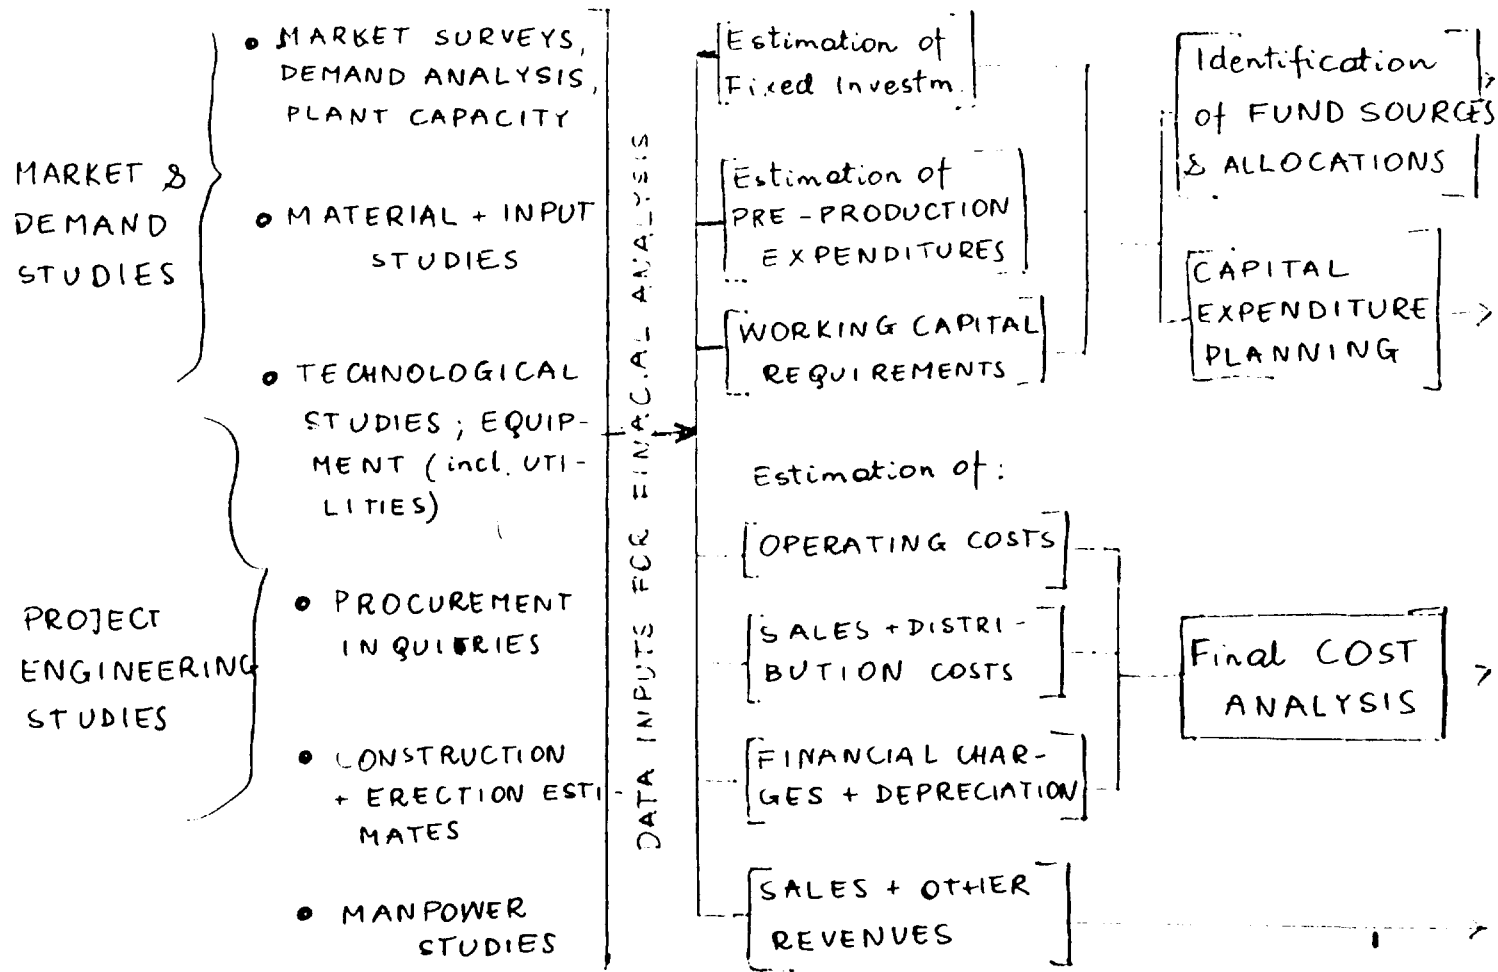 MARKET &
DEMAND
STUDIES
PROJECT
ENGINEERING
STUDIES
• MARKET SURVEYS,
DEMAND ANALYSIS,
PLANT CAPACITY
• MATERIAL + INPUT
STUDIES
• TECHNOLOGICAL
STUDIES ; EQUIP-
MENT (incl. UTI-
LITIES)
• PROCUREMENT
INQUIRIES
• CONSTRUCTION
+ ERECTION ESTI-
MATES
• MANPOWER
STUDIES
DATA INPUTS FOR FINACIAL ANALYSIS
Estimation of
Fixed Investm.
Estimation of
PRE-PRODUCTION
EXPENDITURES
WORKING CAPITAL
REQUIREMENTS
Estimation of:
OPERATING COSTS
SALES + DISTRI-
BUTION COSTS
FINANCIAL CHAR-
GES + DEPRECIATION
SALES + OTHER
REVENUES
Identification
of FUND SOURCES
& ALLOCATIONS
CAPITAL
EXPENDITURE
PLANNING
Final COST
ANALYSIS